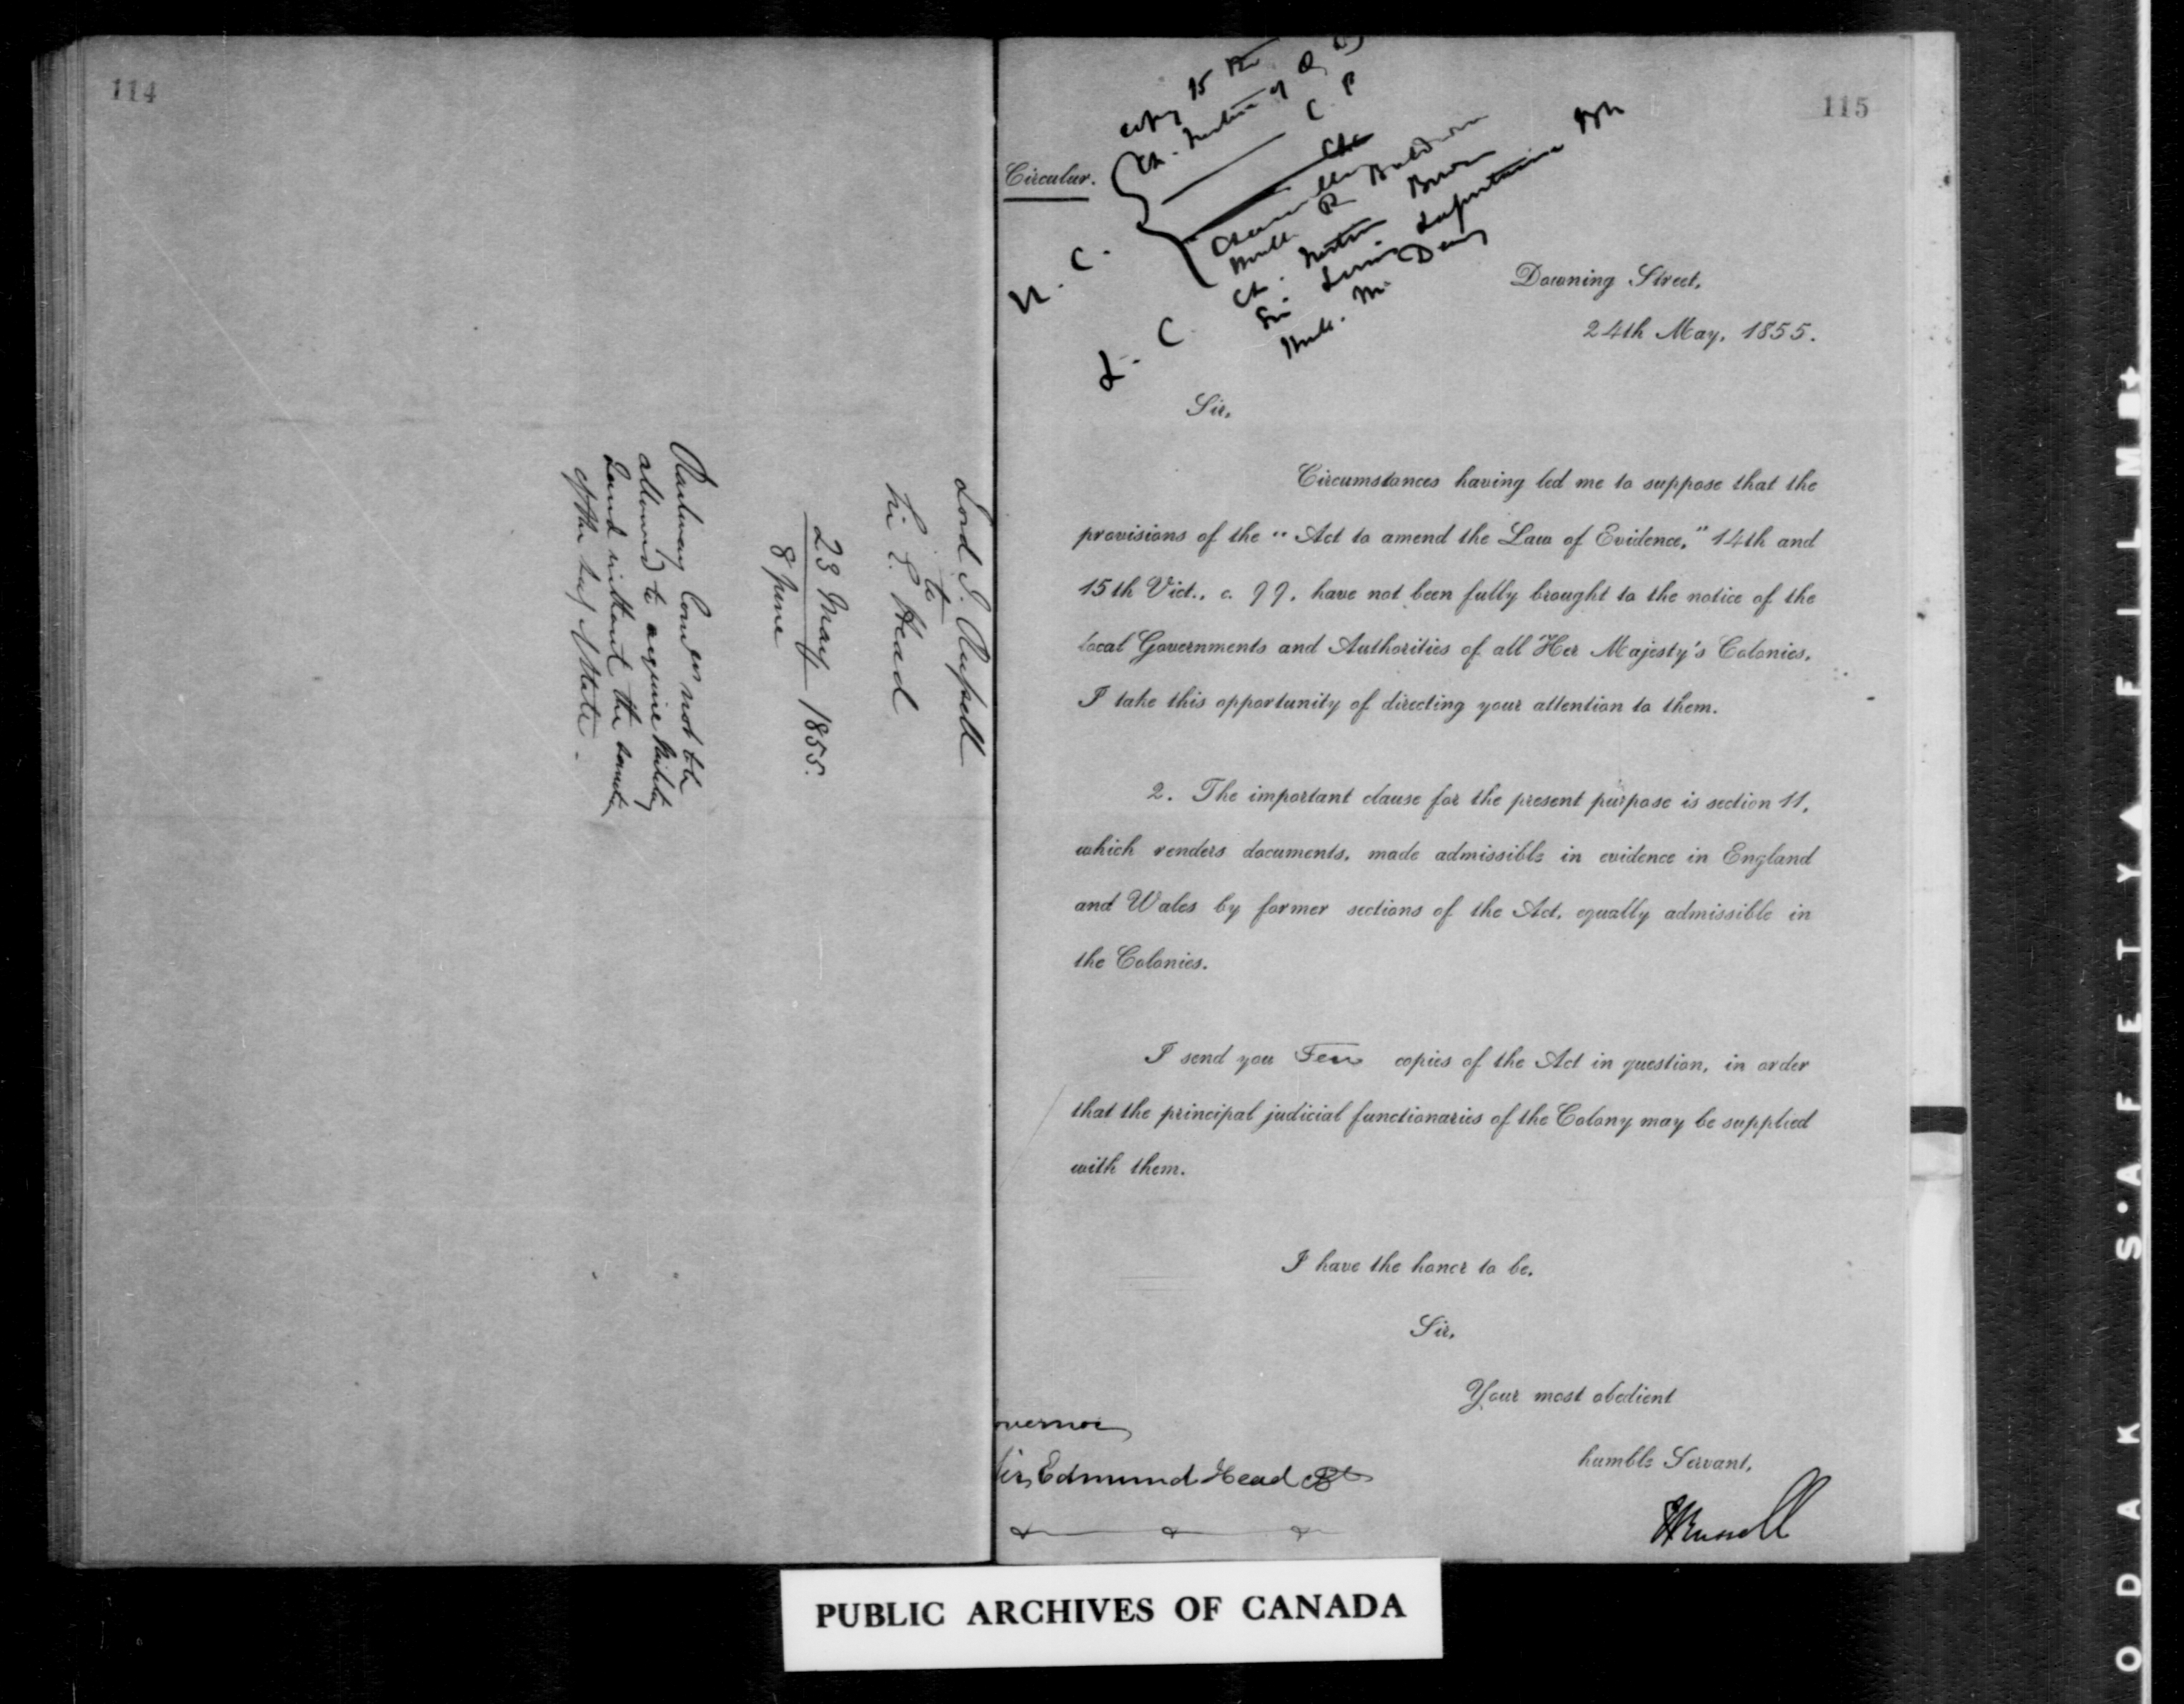 114
Lord J. Russell
to
Sir E. Head
23 May 1855.
8 June
Railway Comp<sup>ies</sup> not to be
allowed to acquire Military
Land without the sanction
of the Sec<sup>y</sup> of State.
115
Circular.
U. C.
Ch. Justice of Q B
C P
Chancellor
R Baldwin
L. C.
Ch. Justice
Sir
Downing Street,
24th May, 1855.
Sir,
Circumstances having led me to suppose that the
provisions of the "Act to amend the Law of Evidence," 14th and
15th Vict., c. 99, have not been fully brought to the notice of the
local Governments and Authorities of all Her Majesty's Colonies,
I take this opportunity of directing your attention to them.
2. The important clause for the present purpose is section 11,
which renders documents, made admissible in evidence in England
and Wales by former sections of the Act, equally admissible in
the Colonies.
I send you Ten copies of the Act in question, in order
that the principal judicial functionaries of the Colony may be supplied
with them.
I have the honor to be,
Sir,
Your most obedient
humble Servant,
J Russell
overnor
Sir Edmund Head Bt
PUBLIC ARCHIVES OF CANADA
ODAK S.AFETY▲FILM